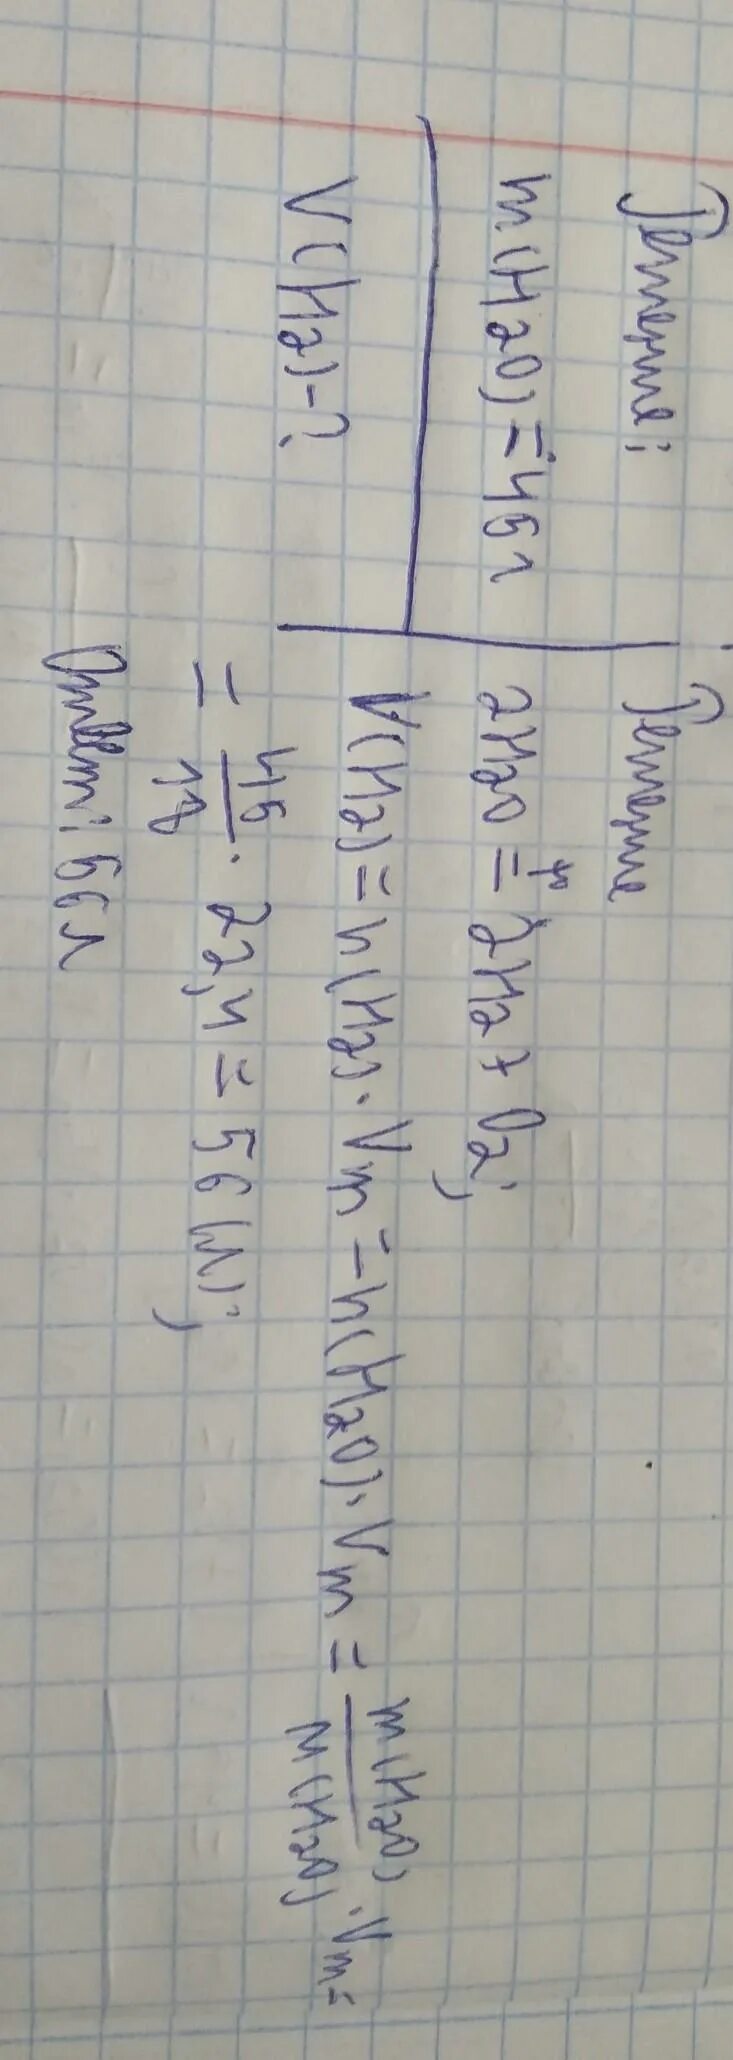 Решение:
m(H2O) = 45г
V(H2) - ?
Решение
2H2O = 2H2 + O2;
V(H2) = n(H2) · Vm = n(H2O) · Vm = m(H2O) / M(H2O) · Vm =
= 45/18 · 22,4 = 56 (л);
Ответ: 56л